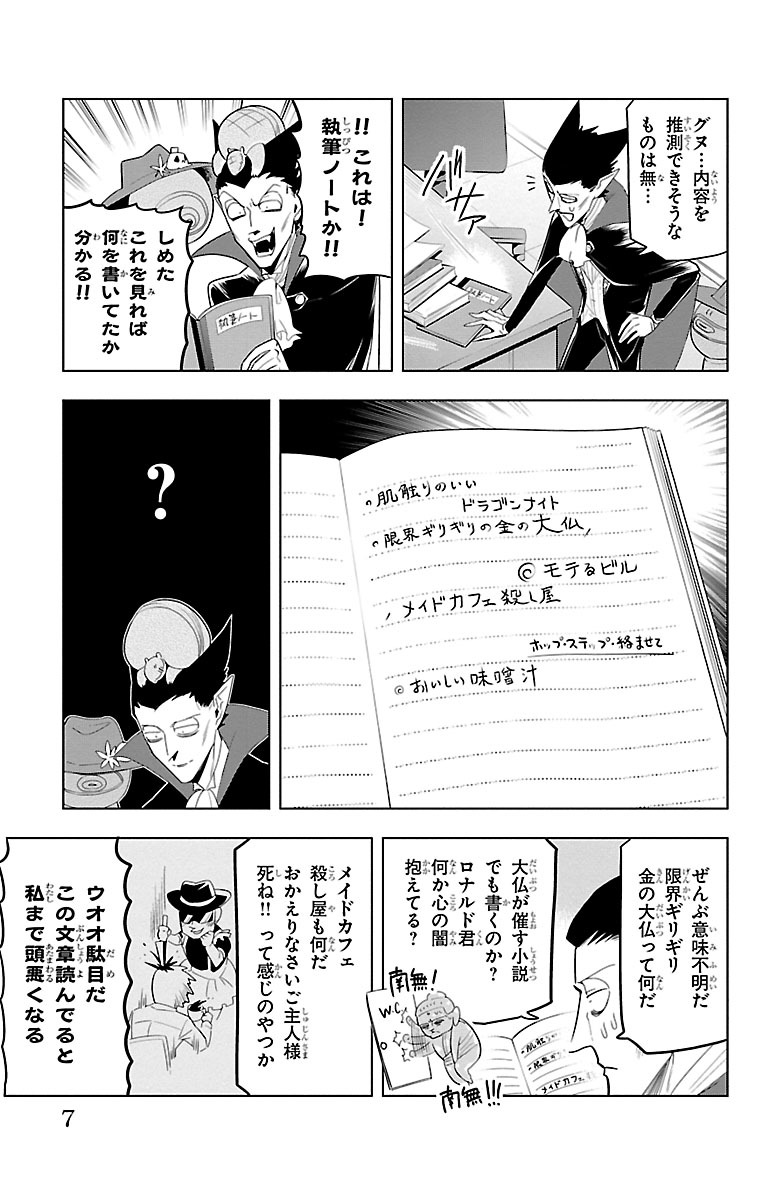 グヌ…内容を
推測できそうな
ものは無…
!!これは!
執筆ノートか!!
執筆ノート
しめた
これを見れば
何を書いてたか
分かる!!
肌触りのいい
ドラゴンナイト
限界ギリギリの金の大仏
モテるビル
メイドカフェ殺し屋
ホップ・ステップ・絡ませて
おいしい味噌汁
?
ぜんぶ意味不明だ
限界ギリギリ
金の大仏って何だ
大仏が催す小説
でも書くのか?
ロナルド君
何か心の闇
抱えてる?
南無!
W.C
南無!!!
肌触り
メイドカフェ
メイドカフェ
殺し屋も何だ
おかえりなさいご主人様
死ね!!って感じのやつか
ウオオ駄目だ
この文章読んでると
私まで頭悪くなる
7